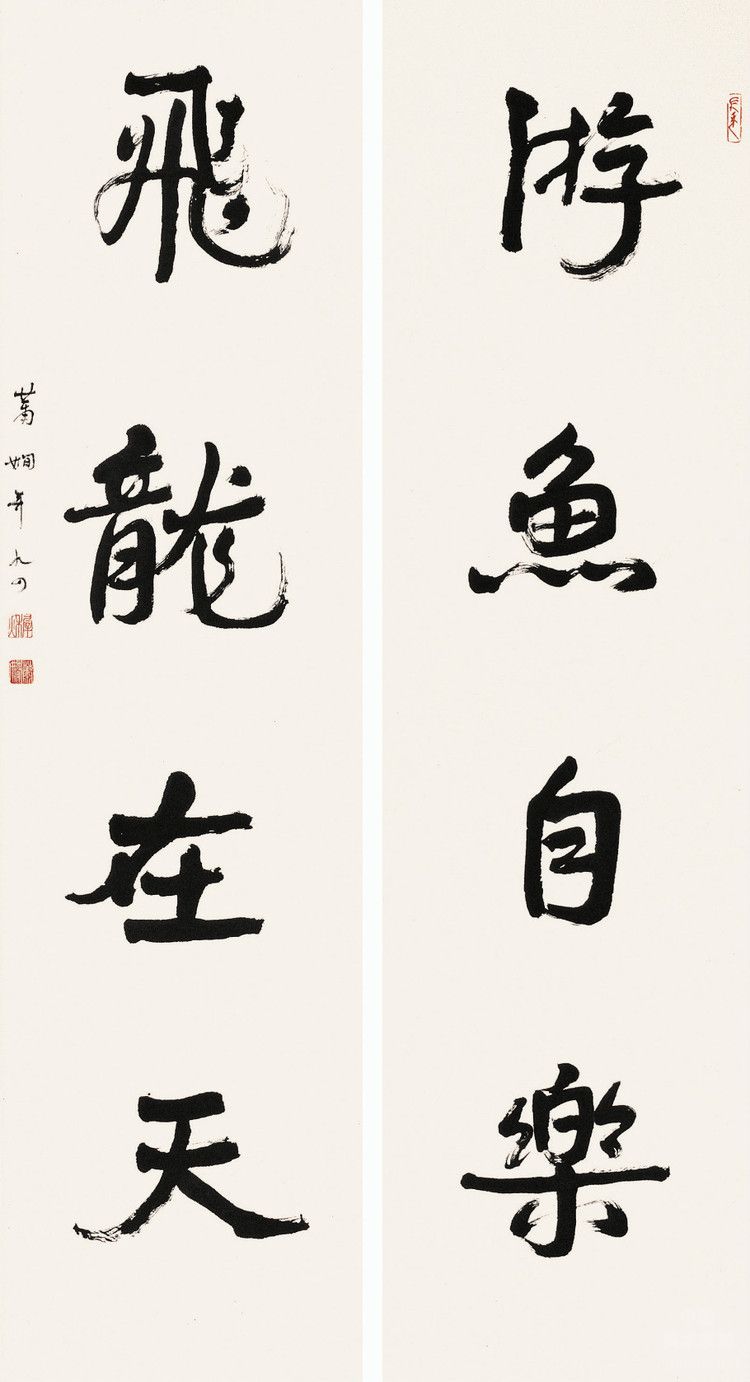 游魚自樂
飛龍在天
蕭嫻年九四